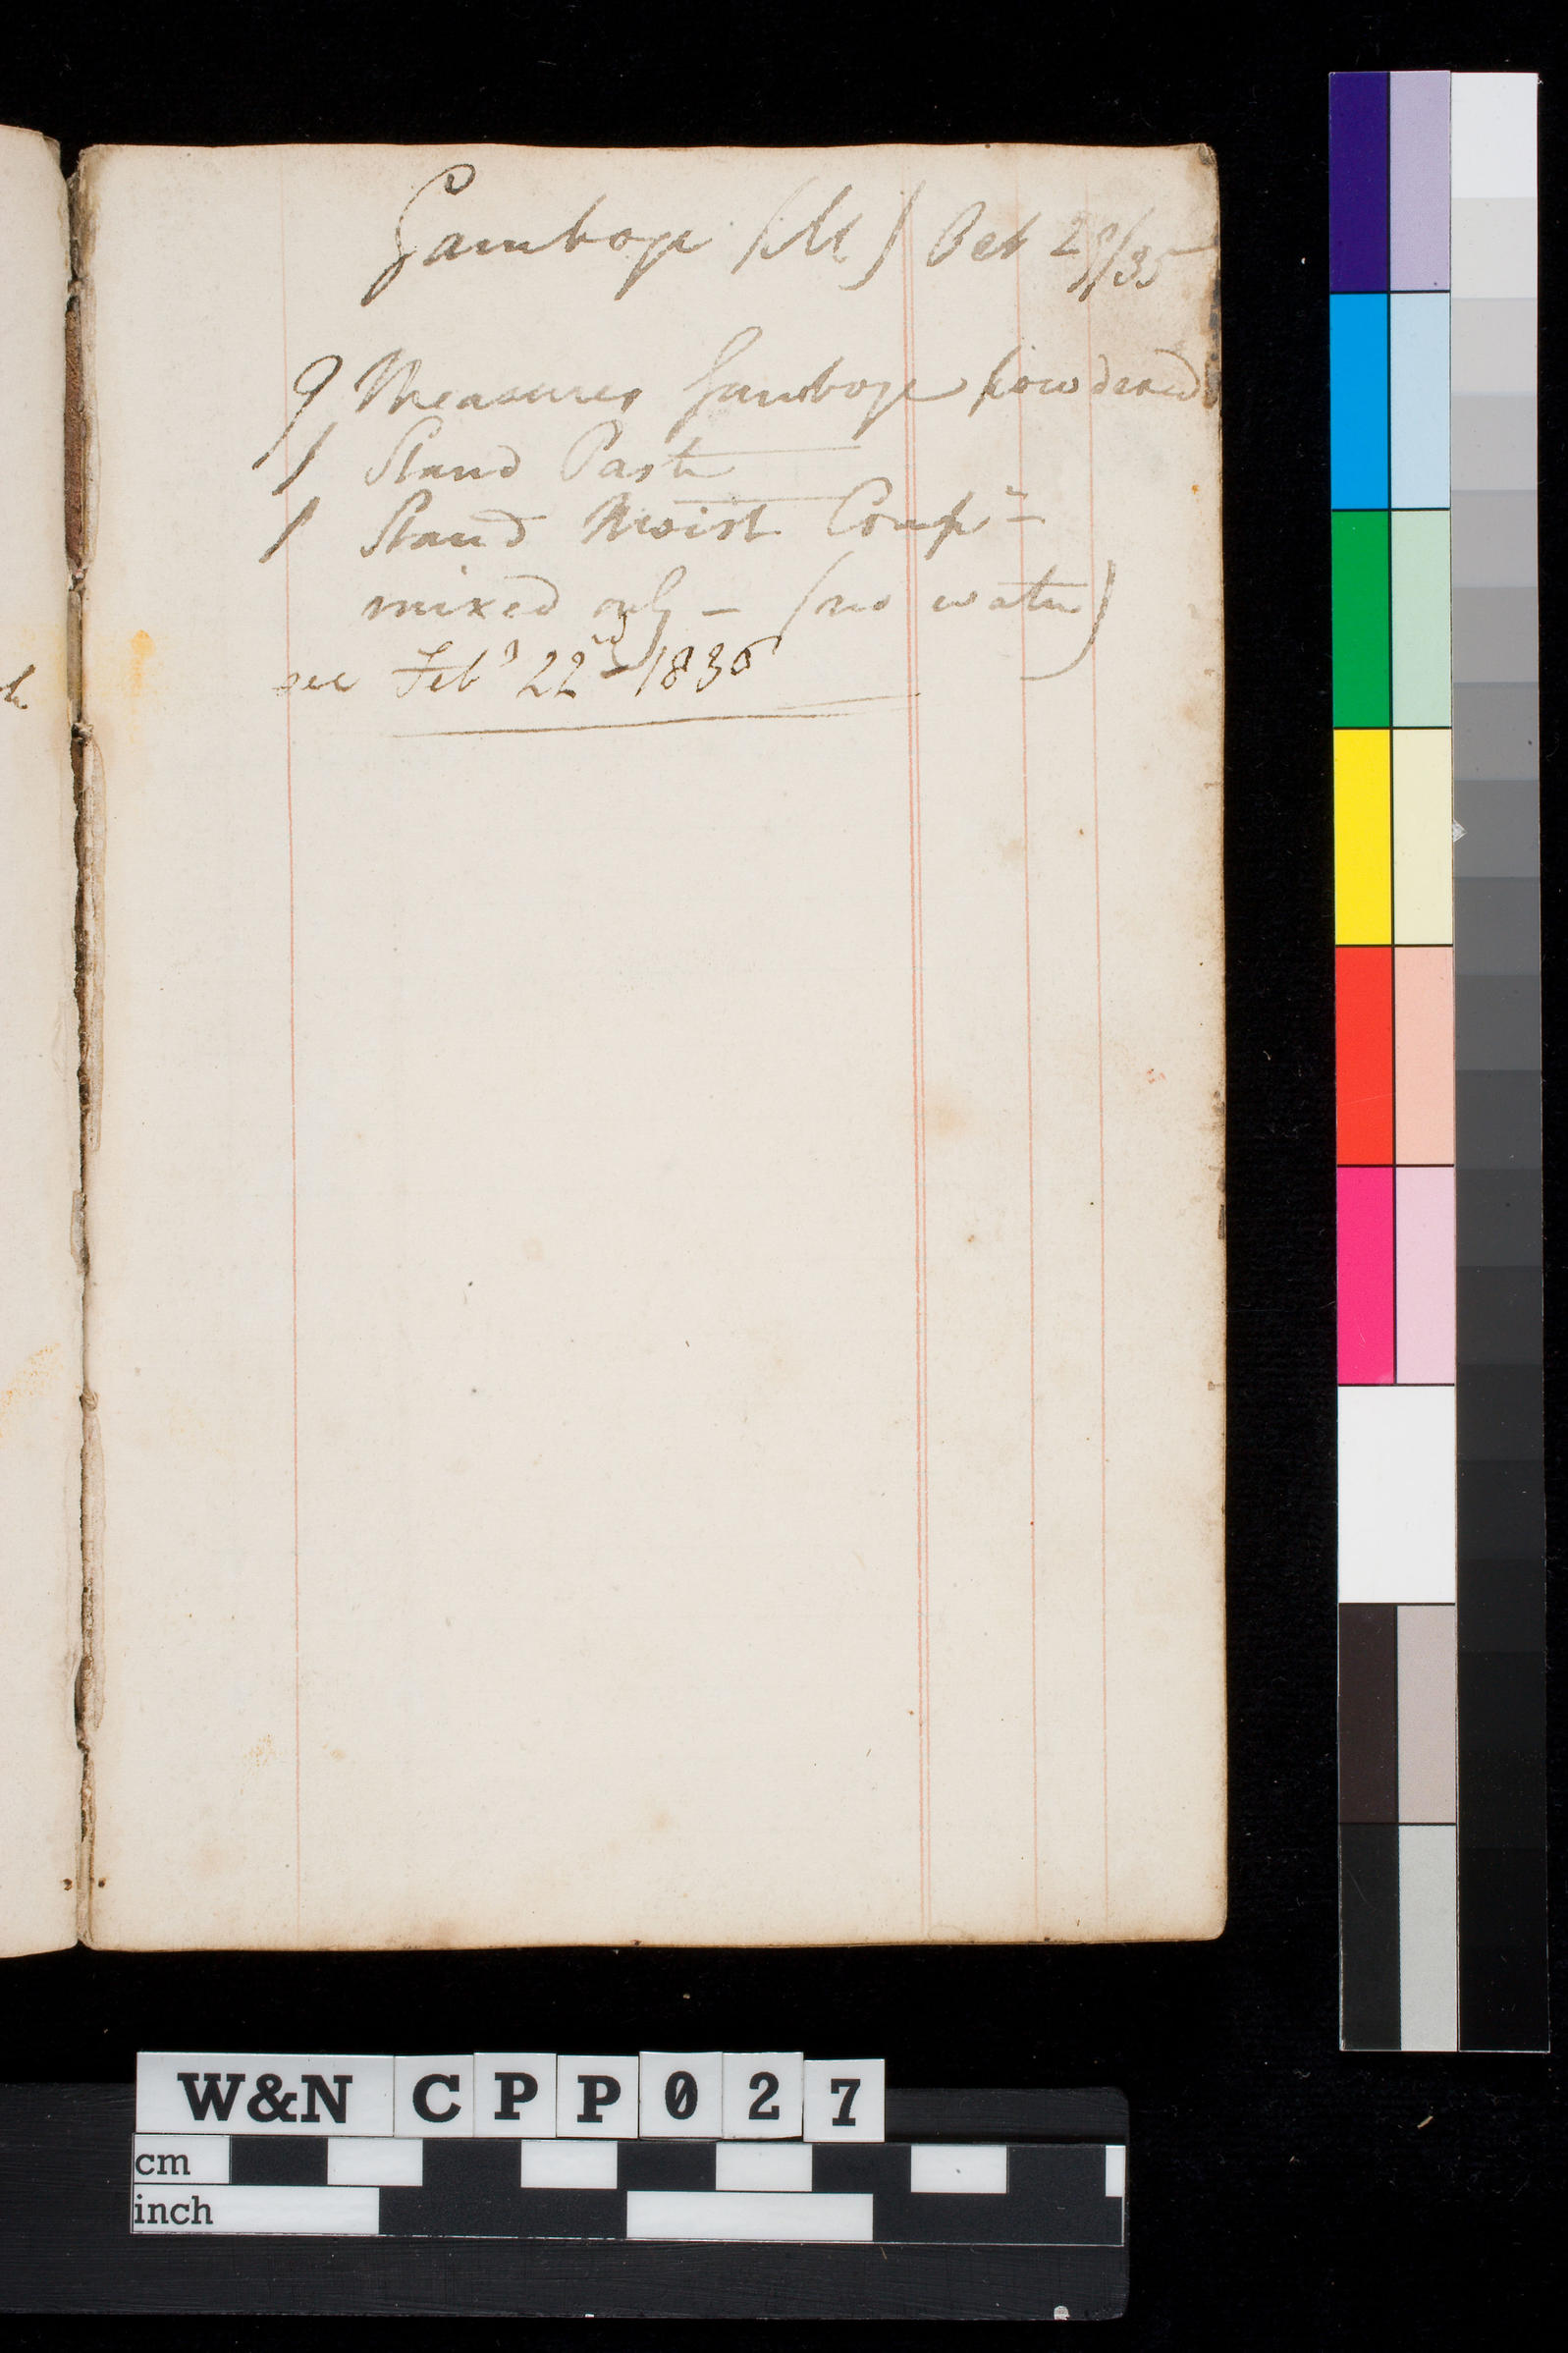 Gamboge (M) Oct 29/35
9 Measures Gamboge powdered
1 Stand Paste
1 Stand Moist Compn
mixed only – (no water)
see Feby 22nd 1836
W&N CPP027
cm
inch